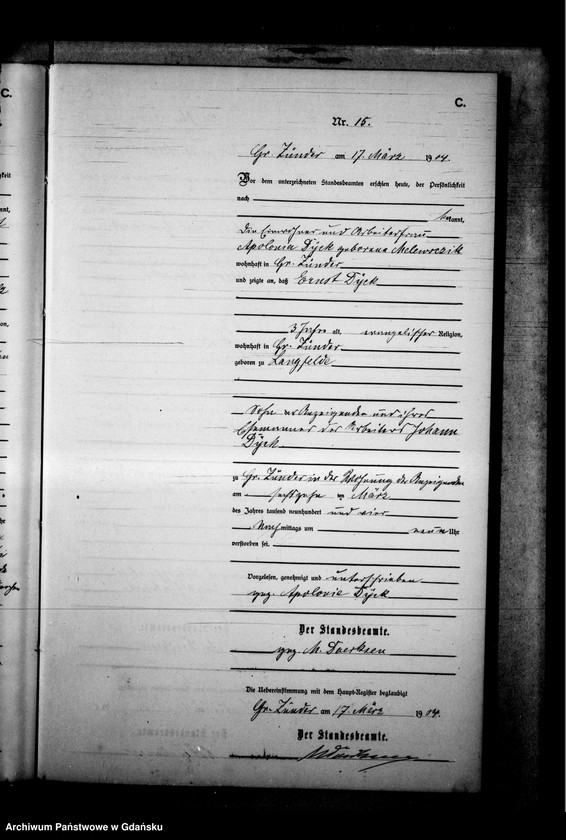 C.
C.
Nr. 15.
Gr. Zünder am 17. März 1904.
Vor dem unterzeichneten Standesbeamten erschien heute, der Persönlichkeit
nach
bekannt,
die Einwohner und Arbeiterfrau
Apolonia Dÿck geborene
wohnhaft in Gr. Zünder
und zeigte an, daß Ernst Dÿck
3 Jahre alt, evangelischer Religion,
wohnhaft in Gr. Zünder
geboren zu Langfelde
Sohn der Anzeigenden und ihres
Ehemannes des Arbeiters Johann
Dÿck
zu Gr. Zünder in der Wohnung der Anzeigenden
am sechszehn ten März
des Jahres tausend neunhundert und vier
Nach mittags um neun Uhr
verstorben sei.
Vorgelesen, genehmigt und unterschrieben
gez. Apolonia Dÿck
Der Standesbeamte.
gez. M. Doerksen
Die Uebereinstimmung mit dem Haupt-Register beglaubigt
Gr. Zünder am 17. März 1904.
Der Standesbeamte.
Archiwum Państwowe w Gdańsku